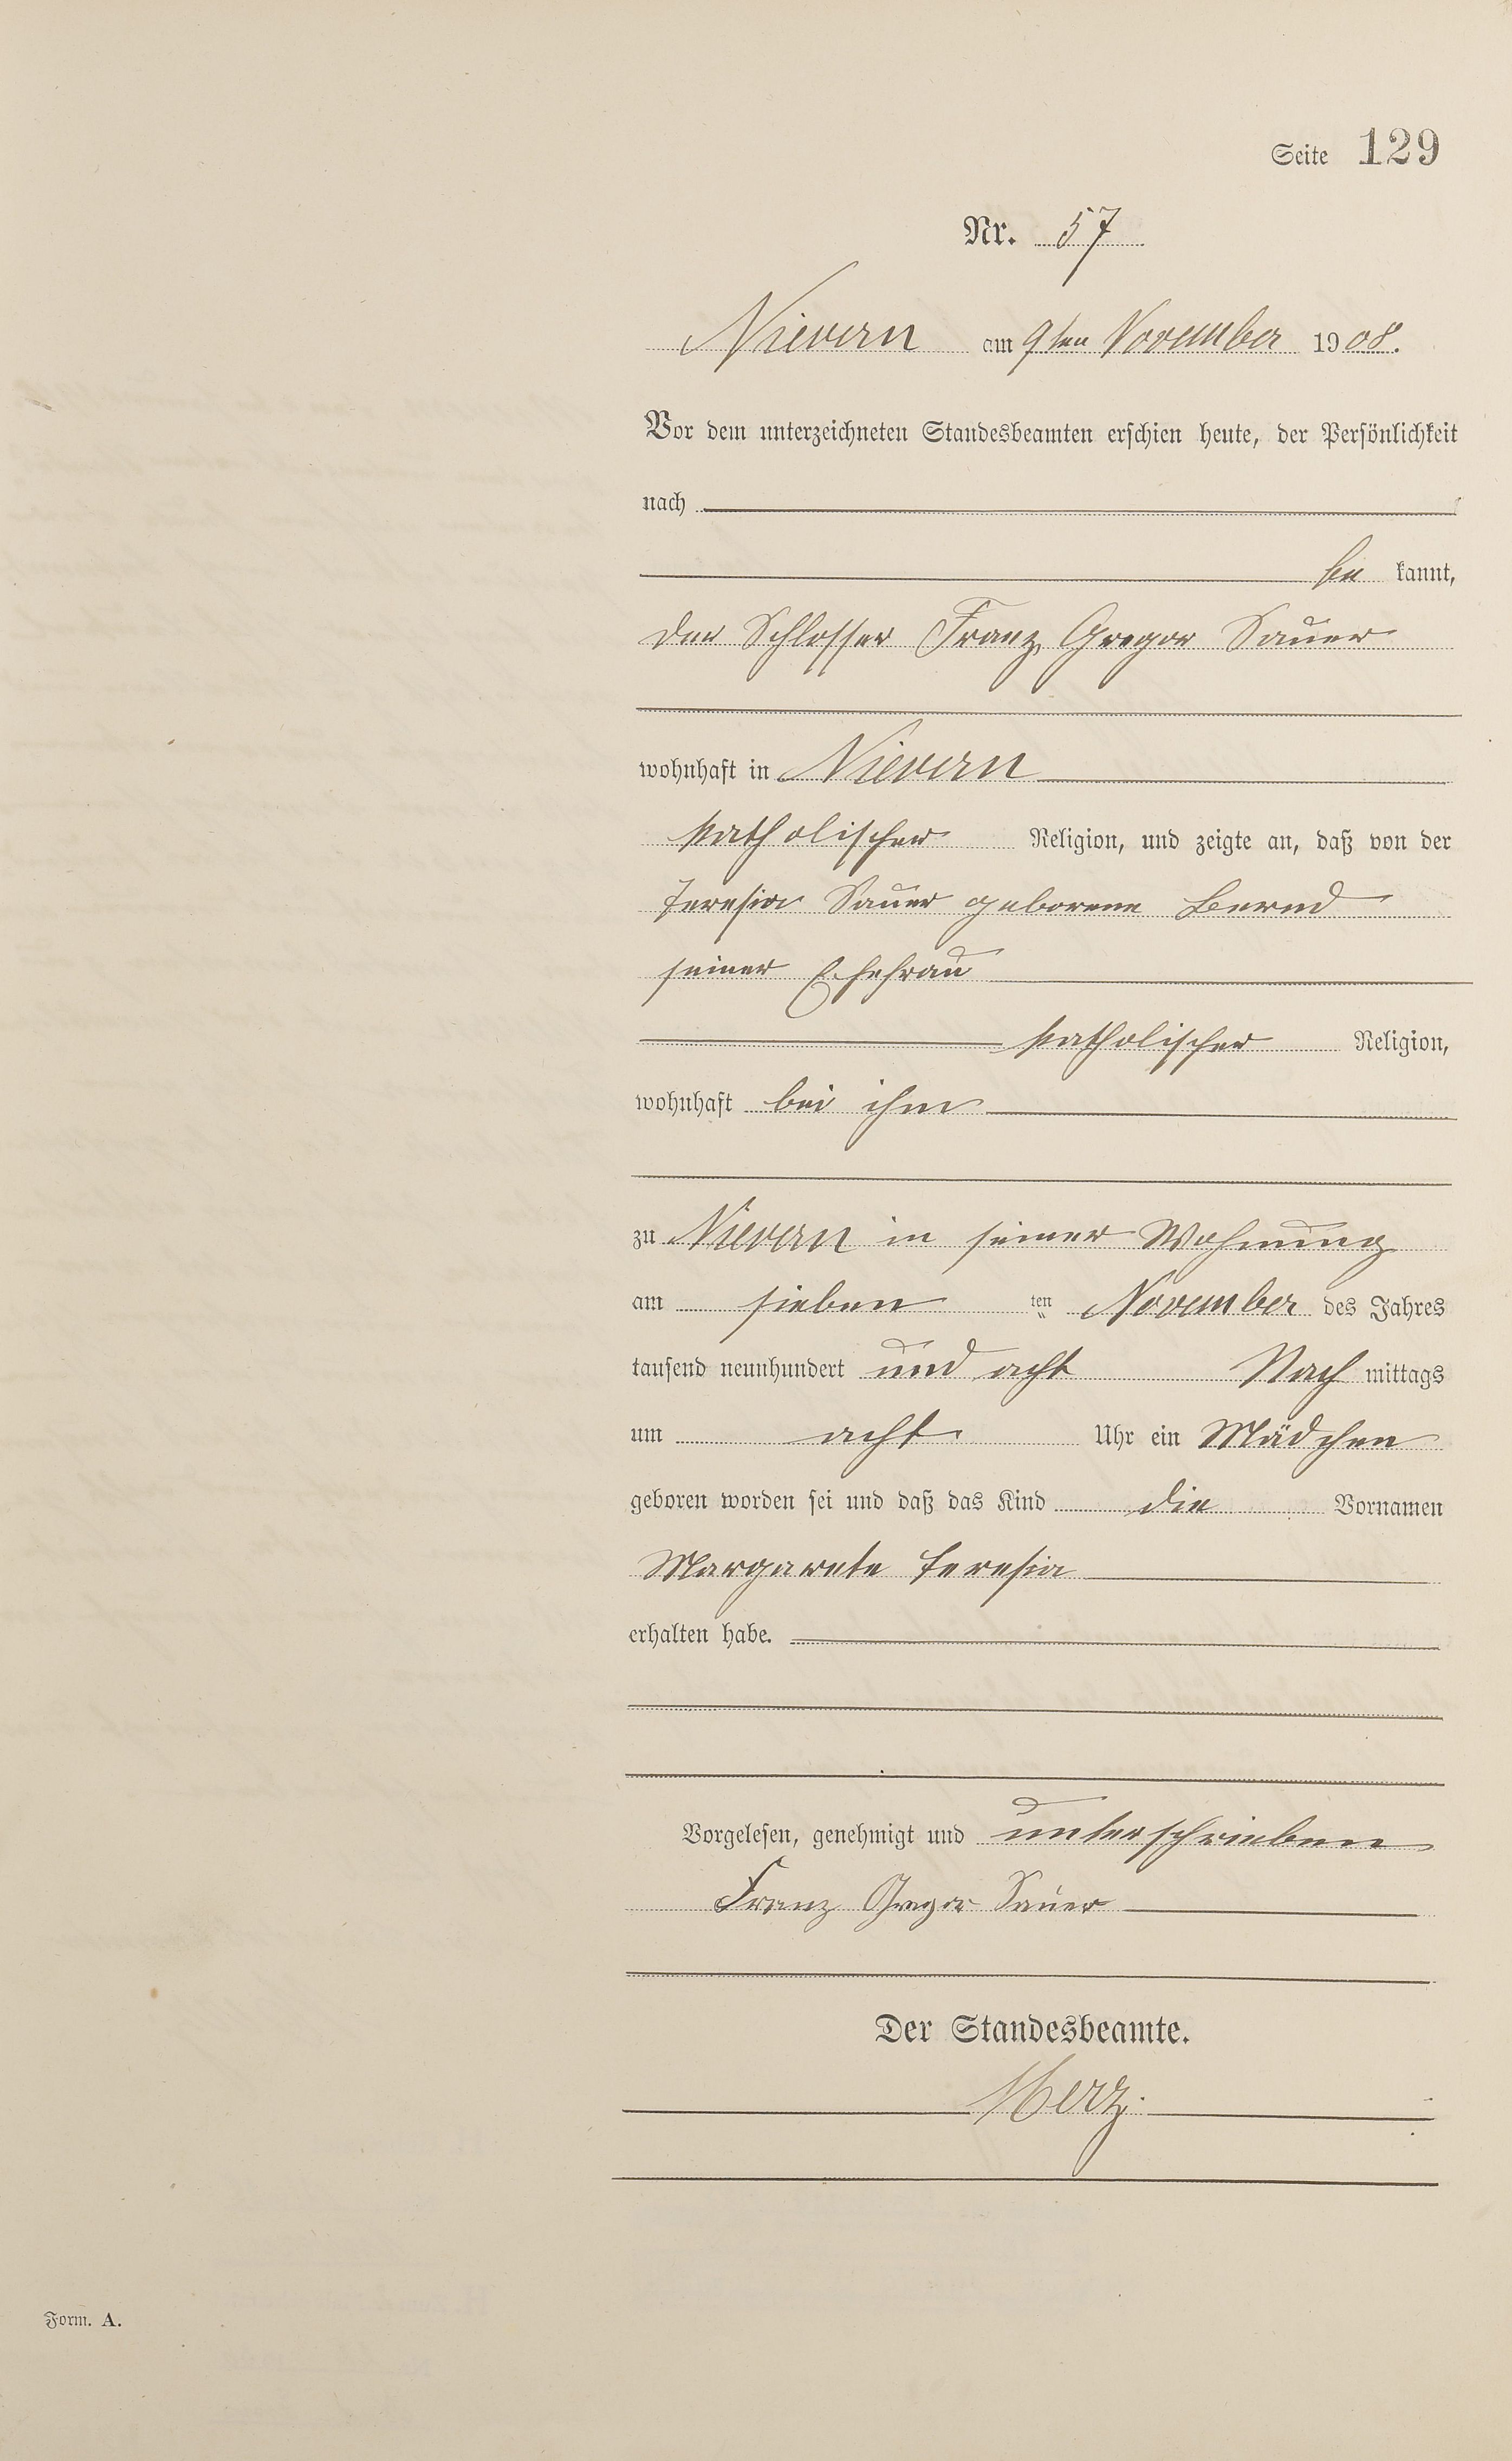 Seite 129
Nr. 57
Nievern am 9ten November 1908.
Vor dem unterzeichneten Standesbeamten erschien heute, der Persönlichkeit
nach
be kannt,
der Schlosser Franz Gregor Sauer
wohnhaft in Nievern
katholischer Religion, und zeigte an, daß von der
Teresia Sauer geborene Bernd
seiner Ehefrau
katholischer Religion,
wohnhaft bei ihm
zu Nievern in seiner Wohnung
am sieben ten November des Jahres
tausend neunhundert und acht Nach mittags
um acht Uhr ein Mädchen
geboren worden sei und daß das Kind die Vornamen
Margarete Teresia
erhalten habe.
Vorgelesen, genehmigt und unterschrieben
Franz Gregor Sauer
Der Standesbeamte.
Merz.
Form. A.